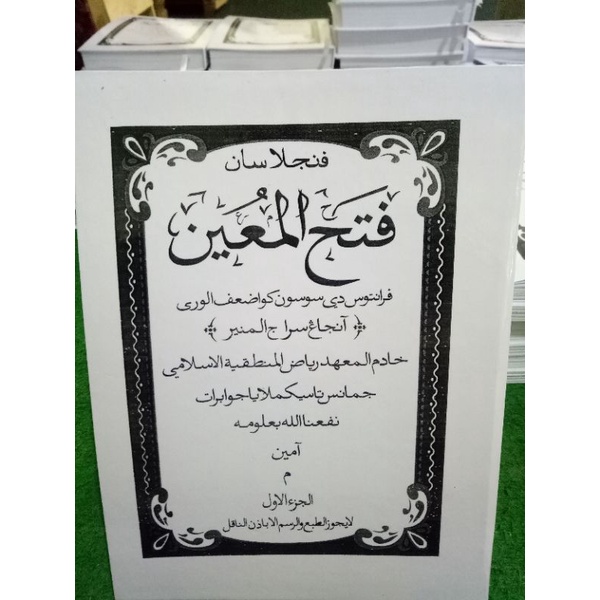 فنجلاسان
فَتَحُ المُعِين
فرانتوس دي سوسون كو اضعف الورى
﴿ آنجاغ سراج المنير ﴾
خادم المعهد رياض المنطقية الاسلامي
جمانس تاسيكملايا جوابرات
نفعنا الله بعلومه
آمين
م
الجزء الاول
لايجوز الطبع والرسم الا باذن الناقل